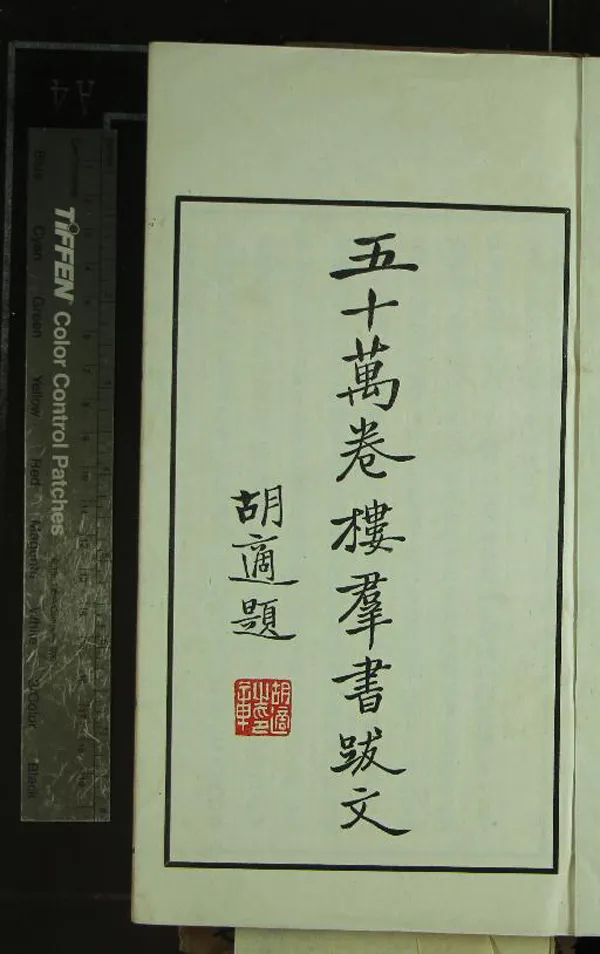 五十萬卷樓羣書跋文
胡適題
胡適之印章
TIFFEN Color Control Patches
Blue
Cyan
Green
Yellow
Red
Magenta
White
3/Color
Black